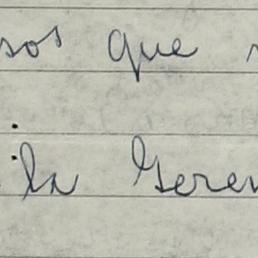 sos que
la Geren